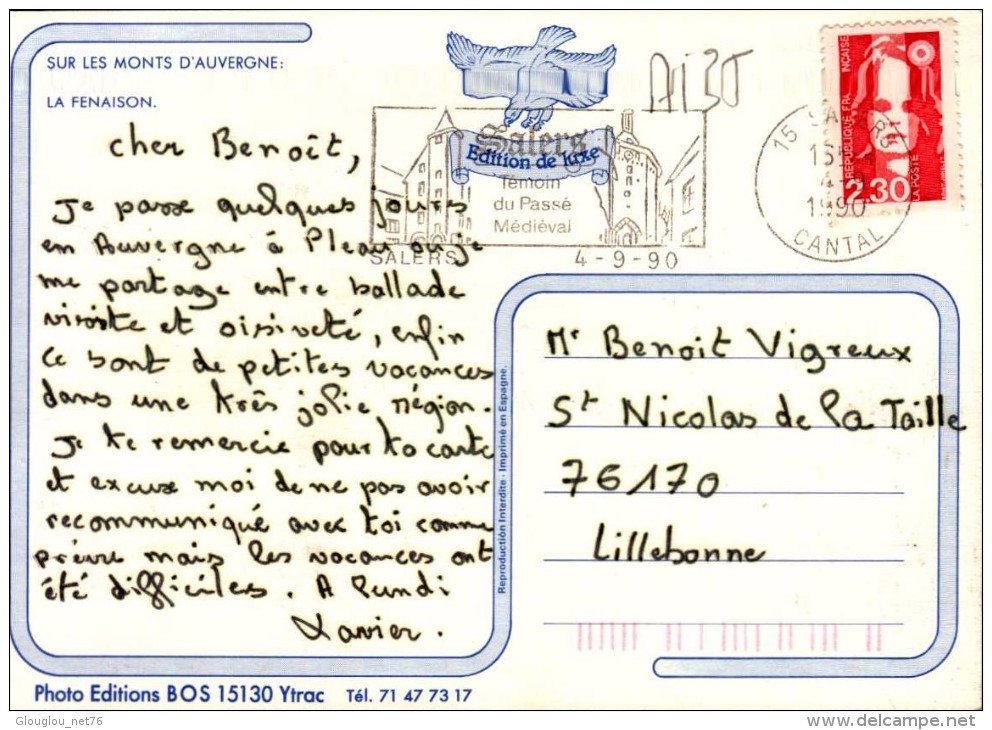 SUR LES MONTS D'AUVERGNE:
LA FENAISON.
cher Benoît,
Je passe quelques jours
en Auvergne à Pleau ou je
me partage entre ballade
visiste et oisiveté, enfin
ce sont de petites vacances
dans une très jolie région.
Je te remercie pour ta carte
et excuse moi de ne pas avoir
recommuniqué avec toi comme
prévue mais les vacances ont
été difficiles. A lundi
Xavier.
Photo Editions BOS 15130 Ytrac Tél. 71 47 73 17
Glouglou_net76
Salers
Edition de luxe
Témoin
du Passé
Médiéval
SALERS 4-9-90
A130
15 SALERS
1990
CANTAL
RÉPUBLIQUE FRANÇAISE
2,30
LA POSTE
Reproduction Interdite - Imprimé en Espagne.
Mr Benoit Vigreux
St Nicolas de la Taille
76170
Lillebonne
www.delcampe.net